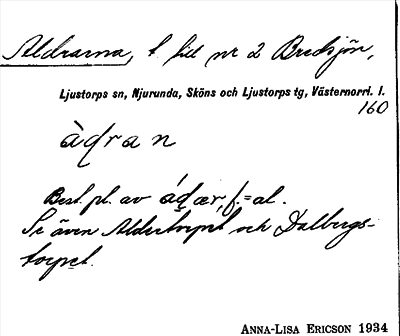 Aldrarna, t. till nr 2 Bredsjön,
Ljustorps sn, Njurunda, Sköns och Ljustorps tg, Västernorrl. l.
160
àḍran
Best. pl. av áḍær, f. = al.
Se även Aldertorpet och Dalbergs-
torpet.
ANNA-LISA ERICSON 1934